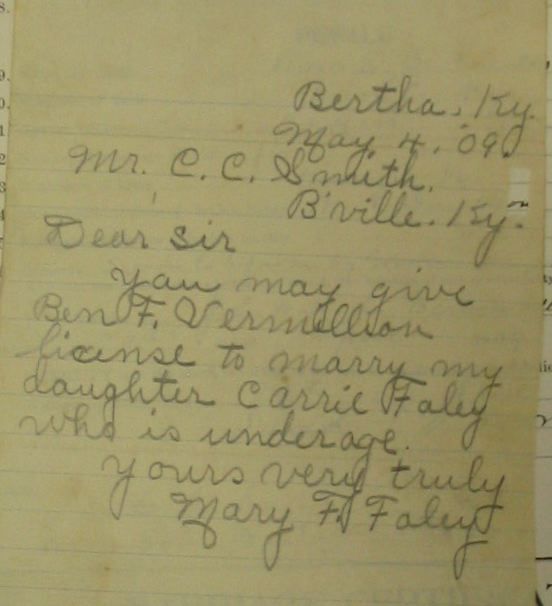 Bertha, Ky.
May 4, '09.
Mr. C. C. Smith,
B'ville, Ky.
Dear Sir
you may give
Ben F. Vermillion
license to marry my
daughter Carrie Faley
who is underage.
yours very truly
Mary F. Faley